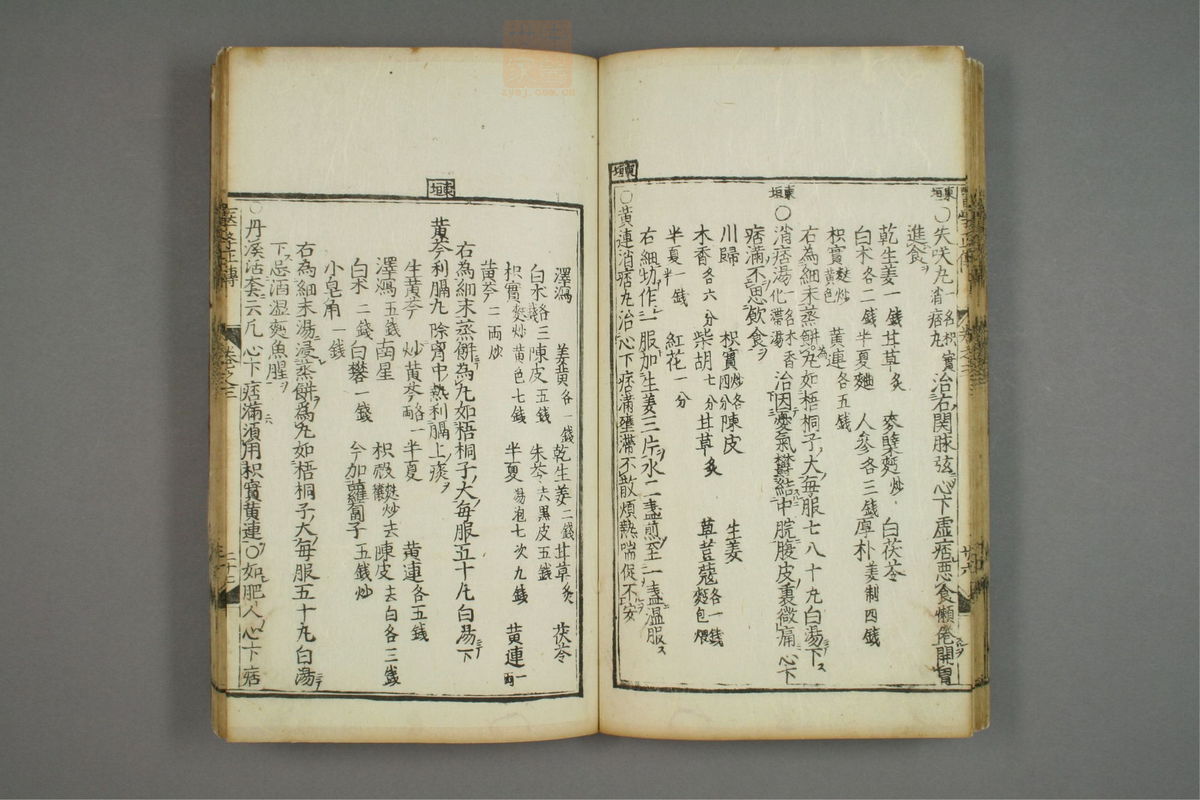 東垣
○失咲丸 一名枳實消痞丸 治右關脉弦心下虛痞惡食懶倦開胃
進食
乾生姜一錢 甘草炙 麥蘖麪炒 白茯苓
白朮各二錢 半夏麯 人參各三錢 厚朴姜制四錢
枳實麩炒黃色 黃連各五錢
右為細末蒸餅為丸如梧桐子大每服七八十丸白湯下
東垣
○消痞湯 一名木香化滯湯 治因憂氣欝結中脘腹皮裏微痛心下
痞滿不思飲食
川歸 枳實炒各四分 陳皮 生姜
木香各六分 柴胡七分 甘草炙 草荳蔻麪包煨各一錢
半夏一錢半 紅花一分
右細切作一服加生姜三片水二盞煎至一盞溫服
東垣
○黃連消痞丸治心下痞滿壅滯不散煩熱喘促不安
澤瀉 姜黃各一錢 乾生姜二錢 甘草炙 茯苓
白朮各三錢 陳皮五錢 朱苓去黑皮五錢
枳實麩炒黃色七錢 半夏湯泡七次九錢 黃連一兩
黃芩二兩炒
右為細末蒸餅為丸如梧桐子大每服五十丸白湯下
東垣
黃芩利膈丸 除胷中熱利膈上痰
生黃芩 炒黃芩各一兩 半夏 黃連各五錢
澤瀉五錢 南星 枳殻麩炒去穰 陳皮去白各三錢
白朮二錢 白礬一錢 今加蘿蔔子五錢炒
小皂角一錢
右為細末湯浸蒸餅為丸如梧桐子大每服五十丸白湯
下忌酒濕麪魚腥
○丹溪活套云凡心下痞滿須用枳實黃連○如肥人心下痞